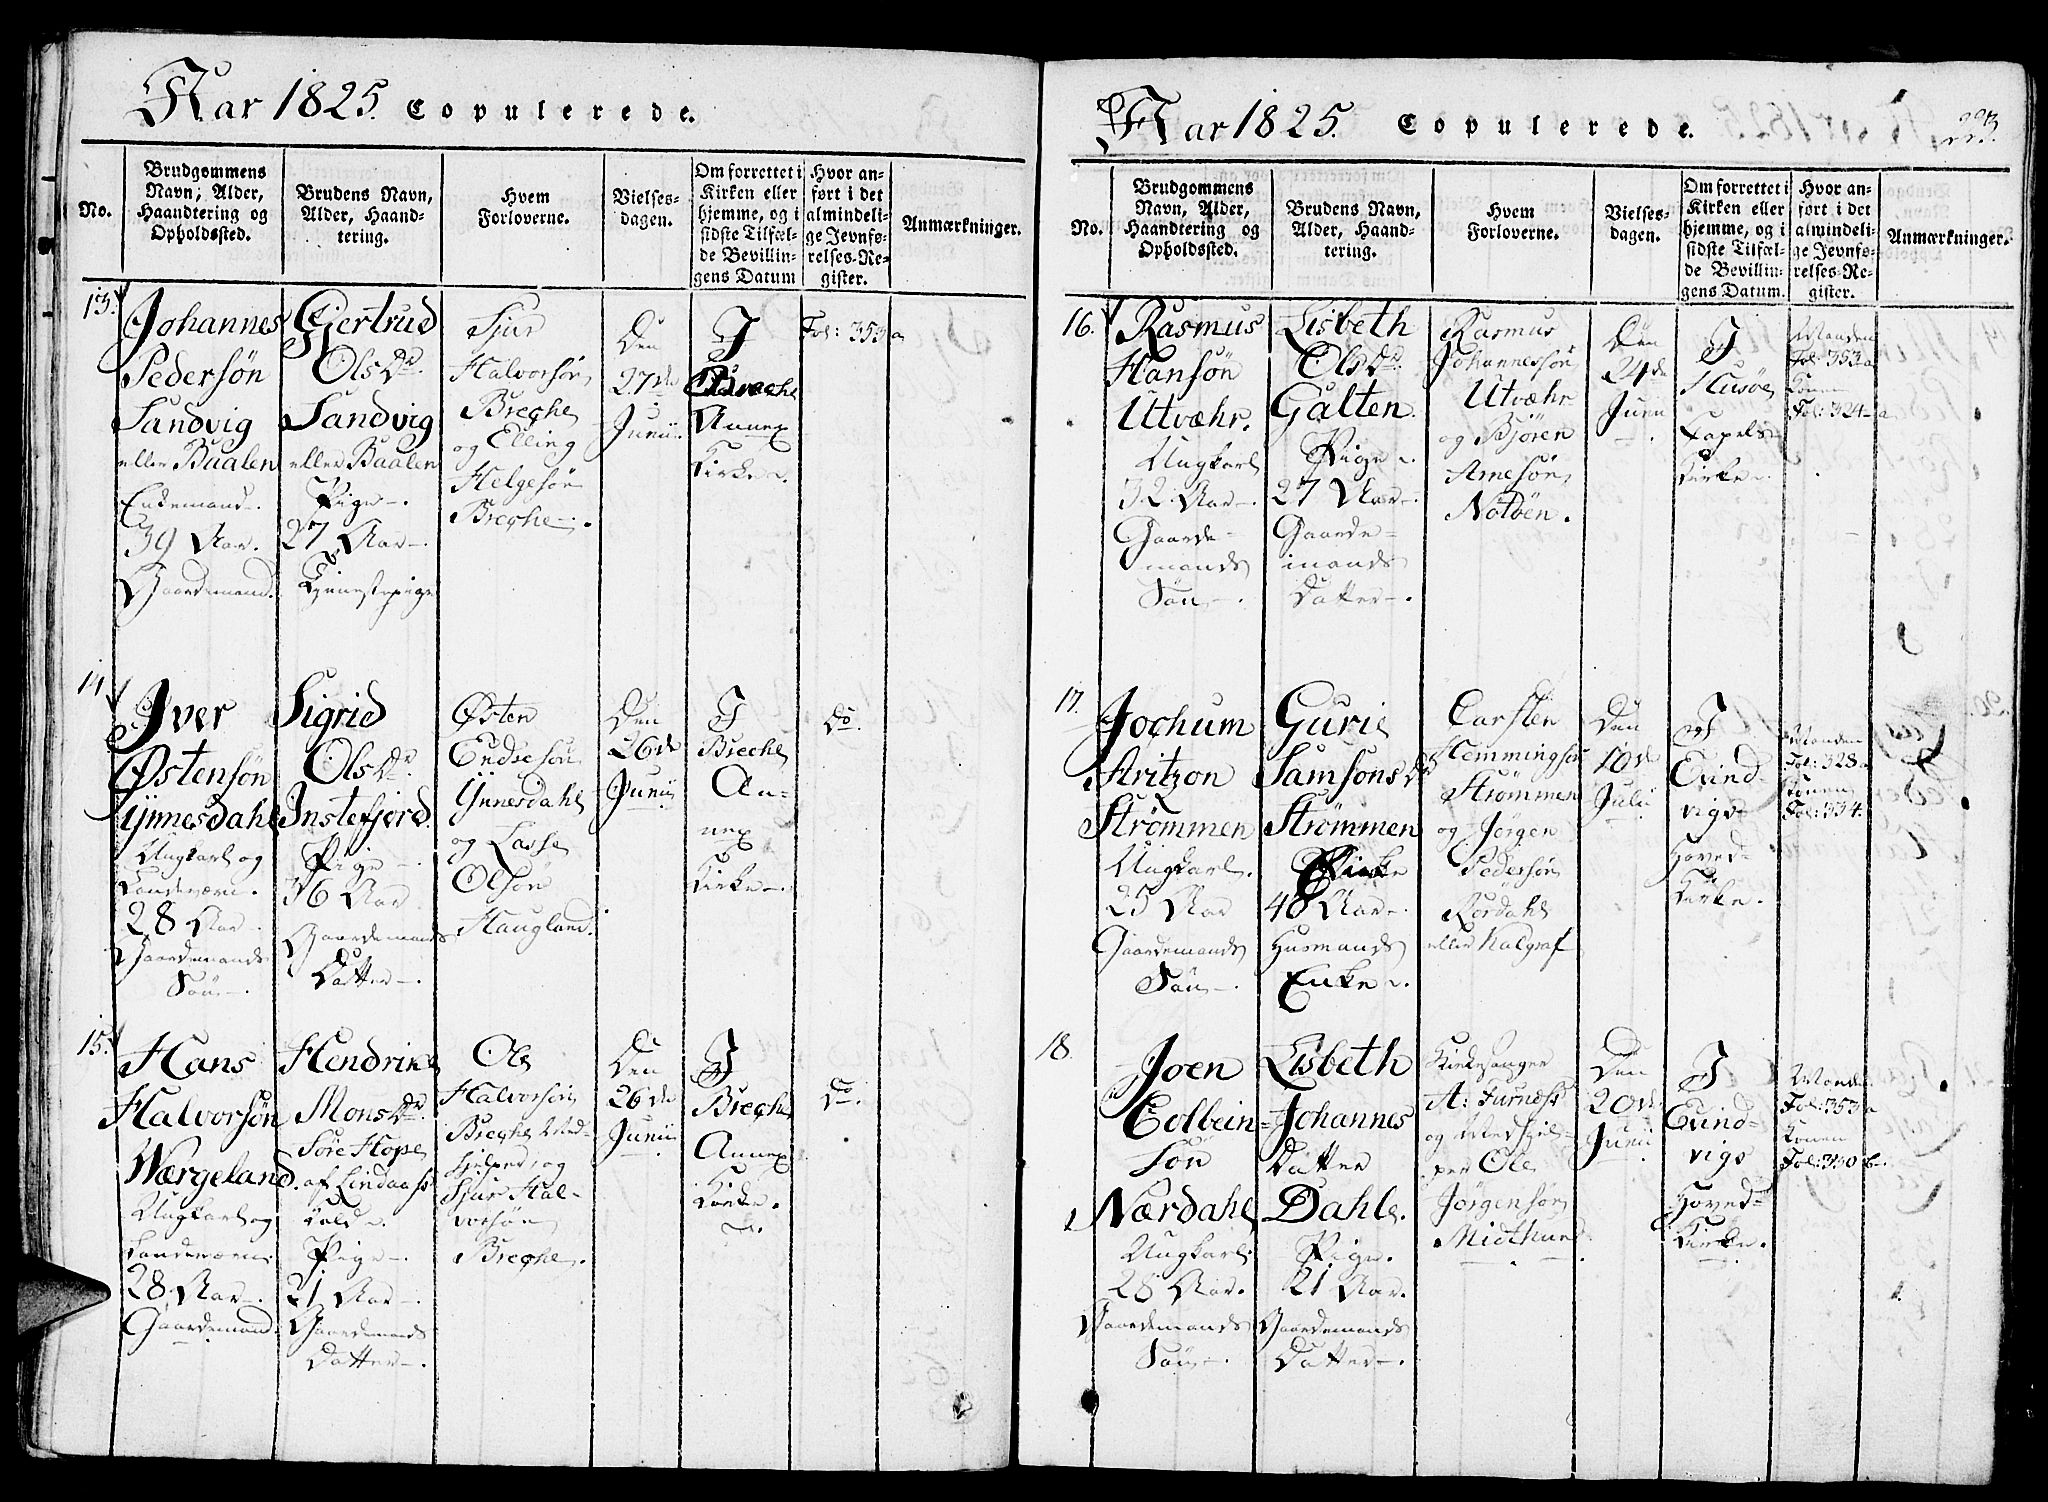 Aar 1825. Copulerede.
No.
Brudgommens
Navn, Alder,
Haandtering og
Opholdssted.
Brudens Navn,
Alder, Haand-
tering.
Hvem
Forloverne.
Vielses-
dagen.
Om forrettet i
Kirken eller
hjemme, og i
sidste Tilfæl-
de Bevillin-
gens Datum
Hvor an-
ført i det
almindeli-
ge Jevnfø-
relses-Re-
gister.
Anmærkninger.
13.
Johannes
Pedersön
Sandvig
eller Baalen
Enkemand.
39 Aar.
Gaardemand.
Giertrud
Ols Dr.
Sandvig
eller Baalen
Pige.
27 Aar.
Tjenestepige
Sjur
Halvorsön
Breche
og Elling
Helgesön
Breche.
Den
27de
Junii.
I
Breche
Annex
Kirke.
Fol: 353 a
14
Iver
Östensön
Ynnesdahl
Ungkarl og
Landeværn.
28 Aar.
Gaardemands
Sön.
Sigrid
Ols Dr.
Instefjord.
Pige.
36 Aar.
Gaardemands
Datter.
Östen
Endsesön
Ynnesdahl
og Lasse
Olsön
Haugland.
Den
26de
Junii
I
Breche
An-
nex
Kirke.
Do.
15.
Hans
Halvorsön
Wærgeland.
Ungkarl og
Landeværn.
28 Aar.
Gaardemand.
Hendrike
Mons Dr.
Söre Hope
af Lindaas
Kald.
Pige.
21 Aar.
Gaardemands
Datter.
Ole
Halvorsön
Breche Med-
hjelper, og
Sjur Hal-
vorsön
Breche.
Den
26de
Junii
I
Breche
Annex
Kirke.
Do.
Aar 1825. Copulerede.
223.
No.
Brudgommens
Navn, Alder,
Haandtering og
Opholdssted.
Brudens Navn,
Alder, Haand-
tering.
Hvem
Forloverne.
Vielses-
dagen.
Om forrettet i
Kirken eller
hjemme, og i
sidste Tilfæl-
de Bevillin-
gens Datum.
Hvor an-
ført i det
almindeli-
ge Jevnfø-
relses-Re-
gister.
Anmærkninger.
16.
Rasmus
Hansön
Utvæhr.
Ungkarl
32 Aar.
Gaarde-
mands
Sön.
Lisbeth
Ols Dr.
Galten.
Pige.
27 Aar.
Gaarde-
mands
Datter.
Rasmus
Johannessön
Utvæhr
og Björen
Arnesön
Notöen.
Den
24de
Junii
I
Husöe
Capels
Kirke.
Manden
Fol: 353 a
Konen
Fol: 324 a
17.
Jochum
Aritzon
Strömmen
Ungkarl.
25 Aar
Gaardemands
Sön.
Gurie
Samsons Dr
Strömmen
Enke
48 Aar.
Husmands
Enke.
Carsten
Hemmingsön
Strömmen
og Jörgen
Pedersön
Rördahl
eller Kalgraf
Den
10de
Julii
I
Evind-
vigs
Hoved-
Kirke.
Manden
Fol: 328 a
Konen
Fol: 334.
18.
Joen
Colbein-
sön
Nærdahl
Ungkarl.
28 Aar.
Gaardemands
Sön.
Lisbeth
Johannes
Datter
Dahle.
Pige.
21 Aar.
Gaardemands
Datter.
Kirkesanger
A: Furnæss
og Medhjel-
per Ole
Jörgensön
Midthun
Den
20de
Junii
I
Evind-
vigs
Hoved-
Kirke.
Manden
Fol: 353 a
Konen
Fol: 350 b.